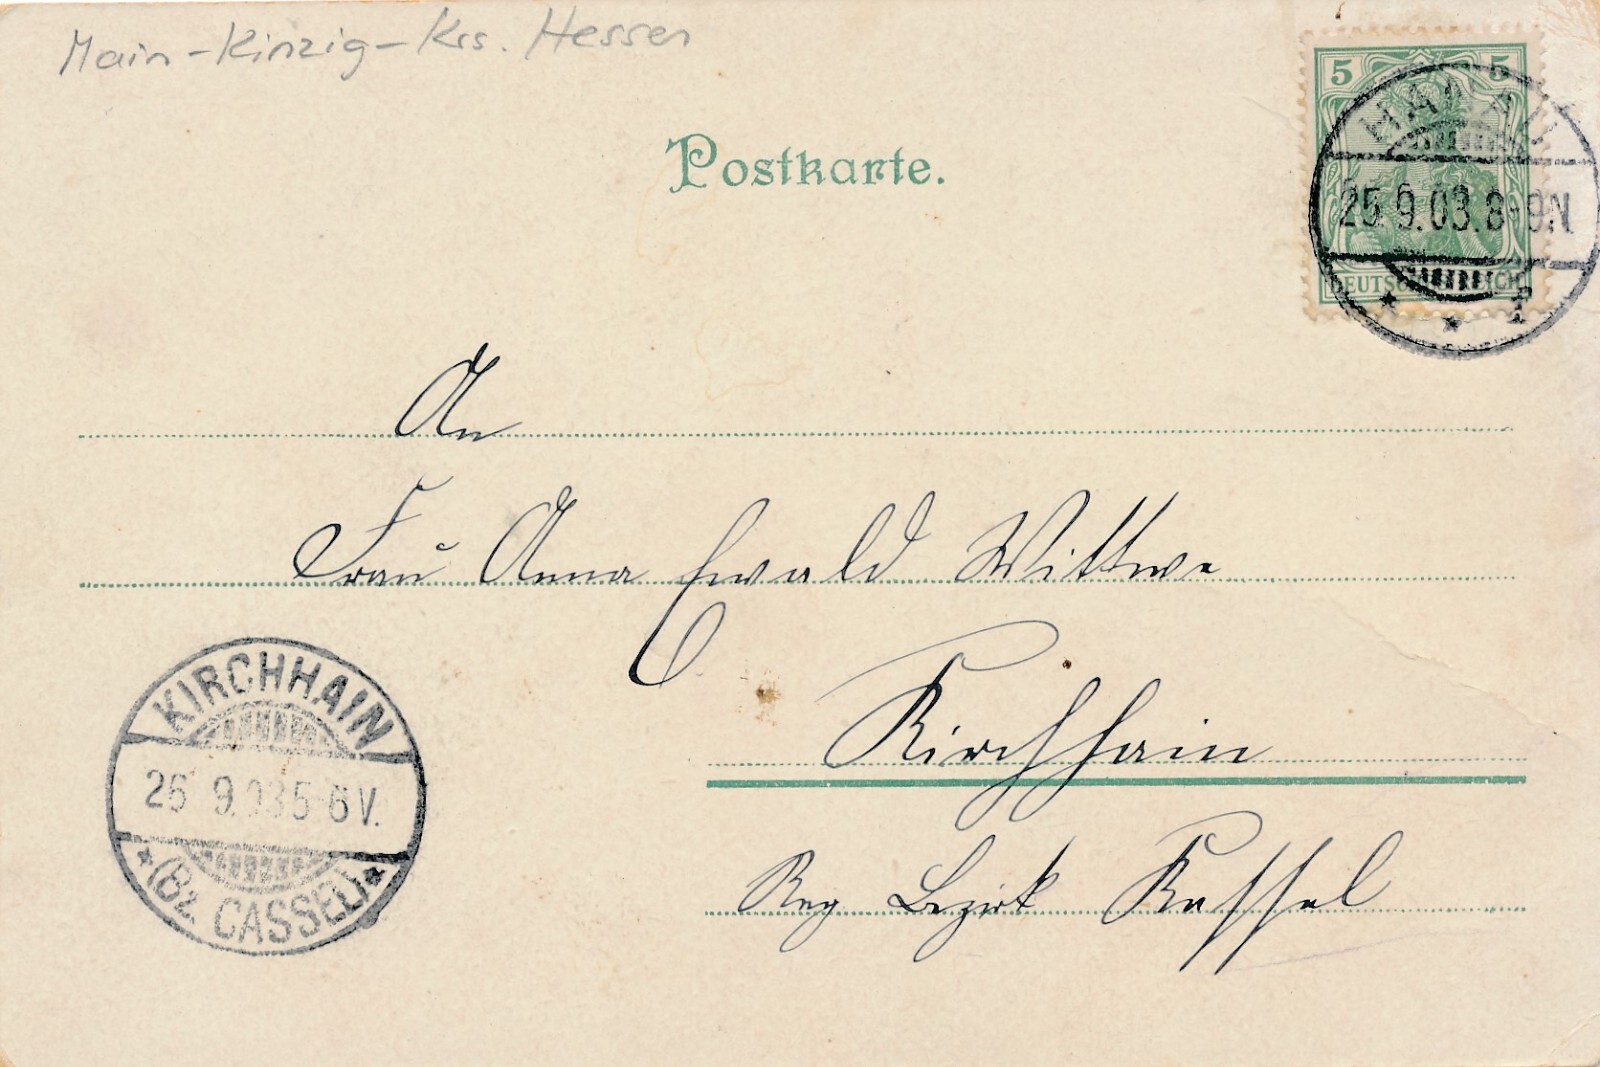 Main-Kinzig-Krs. Hessen
5 5
HANAU
25.9.03.8-9N.
DEUTSCHES REICH
* * 1
Postkarte.
An
Frau Anna Ewald Wittwe
Kirchhain
Reg Bezirk Kassel
KIRCHHAIN
26 9.03 5-6V.
* (Bz. CASSEL) *